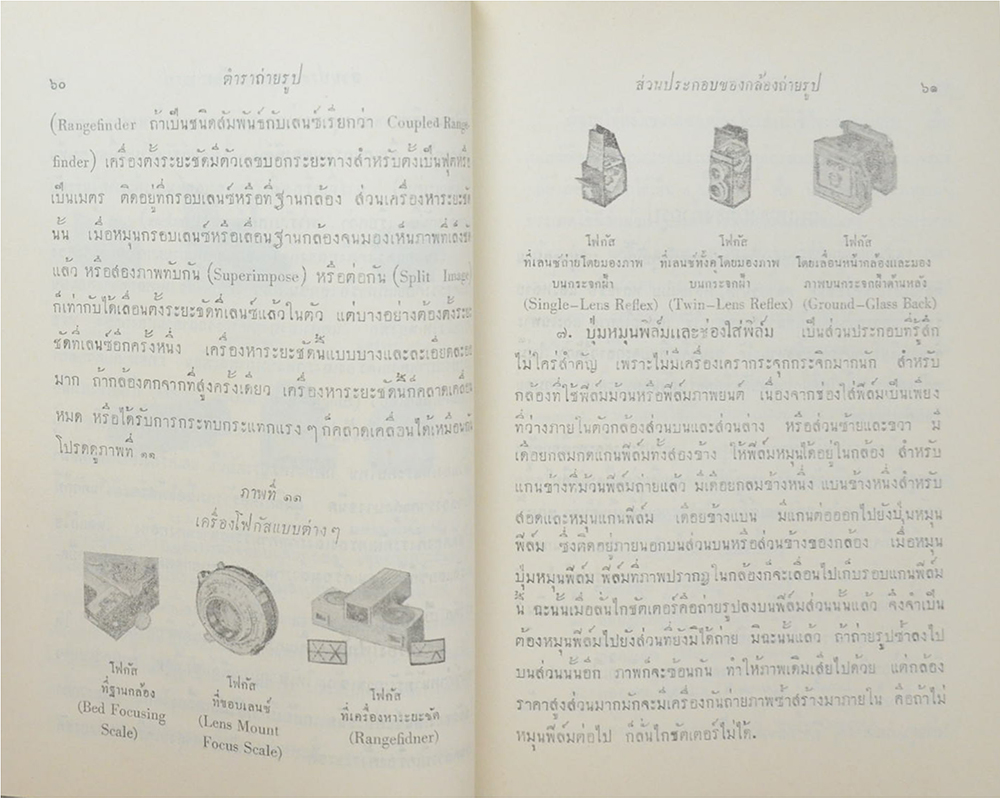 ๖๐
ตำราถ่ายรูป
(Rangefinder ถ้าเป็นชนิดสัมพันธ์กับเลนซ์เรียกว่า Coupled Range-
finder) เครื่องตั้งระยะชัดมีตัวเลขบอกระยะทางสำหรับตั้งเป็นฟุตหรือ
เป็นเมตร ติดอยู่ที่กรอบเลนซ์หรือที่ฐานกล้อง ส่วนเครื่องหาระยะชัด
นั้น เมื่อหมุนกรอบเลนซ์หรือเลื่อนฐานกล้องจนมองเห็นภาพที่เล็งชัด
แล้ว หรือสองภาพทับกัน (Superimpose) หรือต่อกัน (Split Image)
ก็เท่ากับได้เลื่อนตั้งระยะชัดที่เลนซ์แล้วในตัว แต่บางอย่างต้องตั้งระยะ
ชัดที่เลนซ์อีกครั้งหนึ่ง เครื่องหาระยะชัดนี้แบบบางและละเอียดละออ
มาก ถ้ากล้องตกจากที่สูงครั้งเดียว เครื่องหาระยะชัดนี้ก็คลาดเคลื่อน
หมด หรือได้รับการกระทบกระแทกแรง ๆ ก็คลาดเคลื่อนได้เหมือนกัน
โปรดดูภาพที่ ๑๑
ภาพที่ ๑๑
เครื่องโฟกัสแบบต่าง ๆ
โฟกัส
ที่ฐานกล้อง
(Bed Focusing
Scale)
โฟกัส
ที่ขอบเลนซ์
(Lens Mount
Focus Scale)
โฟกัส
ที่เครื่องหาระยะชัด
(Rangefidner)
ส่วนประกอบของกล้องถ่ายรูป
๖๑
โฟกัส
ที่เลนซ์ถ่ายโดยมองภาพ
บนกระจกฝ้า
(Single-Lens Reflex)
โฟกัส
ที่เลนซ์ทั้งคู่โดยมองภาพ
บนกระจกฝ้า
(Twin-Lens Reflex)
โฟกัส
โดยเลื่อนหน้ากล้องและมอง
ภาพบนกระจกฝ้าด้านหลัง
(Ground-Glass Back)
๗. ปุ่มหมุนฟิล์มและช่องใส่ฟิล์ม เป็นส่วนประกอบที่รู้สึก
ไม่ใคร่สำคัญ เพราะไม่มีเครื่องเครากระจุกกระจิกมากนัก สำหรับ
กล้องที่ใช้ฟิล์มม้วนหรือฟิล์มภาพยนต์ เนื่องจากช่องใส่ฟิล์มเป็นเพียง
ที่ว่างภายในตัวกล้องส่วนบนและส่วนล่าง หรือส่วนซ้ายและขวา มี
เดือยกลมกดแกนฟิล์มทั้งสองข้าง ให้ฟิล์มหมุนได้อยู่ในกล้อง สำหรับ
แกนข้างที่ม้วนฟิล์มถ่ายแล้ว มีเดือยกลมข้างหนึ่ง แบนข้างหนึ่งสำหรับ
สอดและหมุนแกนฟิล์ม เดือยข้างแบน มีแกนต่อออกไปยังปุ่มหมุน
ฟิล์ม ซึ่งติดอยู่ภายนอกบนส่วนบนหรือส่วนข้างของกล้อง เมื่อหมุน
ปุ่มหมุนฟิล์ม ฟิล์มที่ภาพปรากฏในกล้องก็จะเลื่อนไปเก็บรอบแกนฟิล์ม
นี้ ฉะนั้นเมื่อลั่นไกชัตเตอร์คือถ่ายรูปลงบนฟิล์มส่วนนั้นแล้ว จึงจำเป็น
ต้องหมุนฟิล์มไปยังส่วนที่ยังมิได้ถ่าย มิฉะนั้นแล้ว ถ้าถ่ายรูปซ้ำลงไป
บนส่วนนั้นอีก ภาพก็จะซ้อนกัน ทำให้ภาพเดิมเสียไปด้วย แต่กล้อง
ราคาสูงส่วนมากมักจะมีเครื่องกันถ่ายภาพซ้ำสร้างมาภายใน คือถ้าไม่
หมุนฟิล์มต่อไป ก็ลั่นไกชัตเตอร์ไม่ได้.